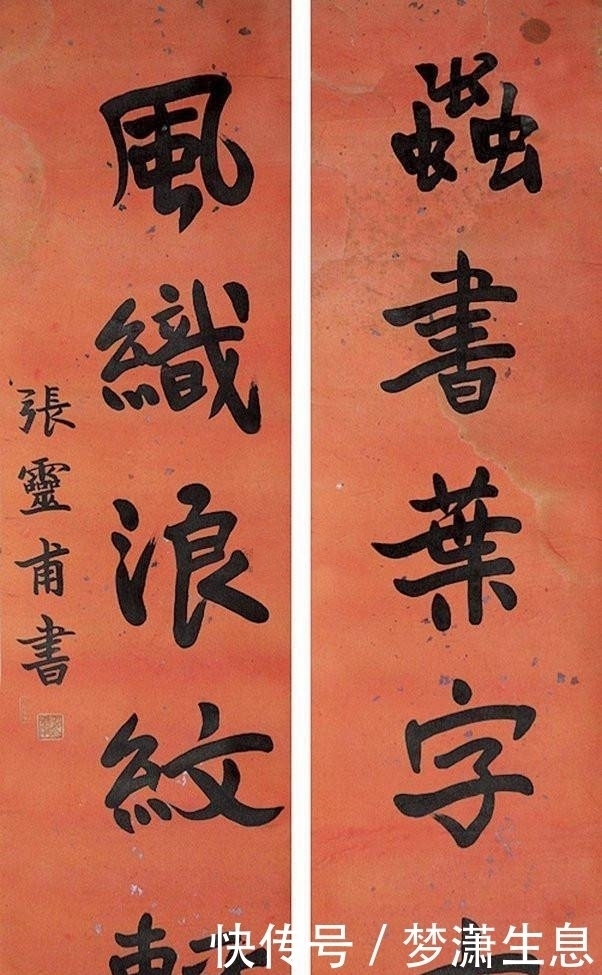 蟲書葉字
風織浪紋
張靈甫書
快传号 / 梦潇生息